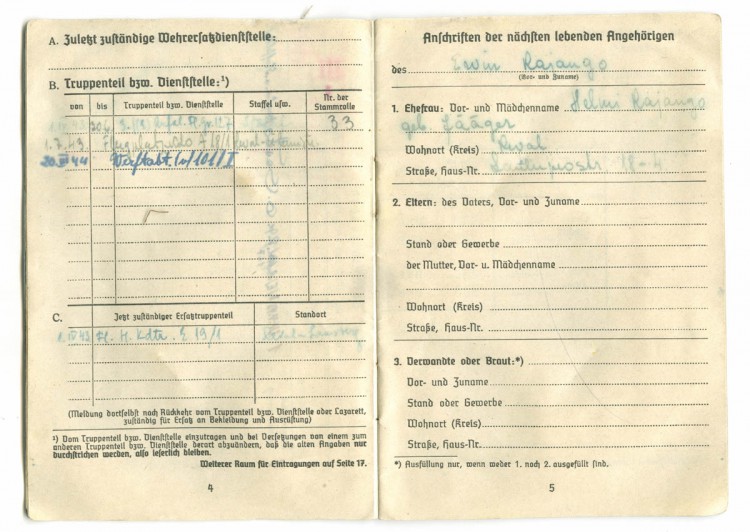 A. Zuletzt zuständige Wehrersatzdienststelle:
B. Truppenteil bzw. Dienststelle:¹)
von bis Truppenteil bzw. Dienststelle Staffel usw. Nr. der Stammrolle
33
1.7.43.
20. 44
C. Jetzt zuständiger Ersatztruppenteil Standort
43 Kdtr. E 19/1
(Meldung dortselbst nach Rückkehr vom Truppenteil bzw. Dienststelle oder Lazarett,
zuständig für Ersatz an Bekleidung und Ausrüstung)
¹) Vom Truppenteil bzw. Dienststelle einzutragen und bei Versetzungen von einem zum
anderen Truppenteil bzw. Dienststelle derart abzuändern, daß die alten Angaben nur
durchstrichen werden, also leserlich bleiben.
Weiterer Raum für Eintragungen auf Seite 17.
4
Anschriften der nächsten lebenden Angehörigen
des Erwin Rajango
(Vor- und Zuname)
1. Ehefrau: Vor- und Mädchenname Helmi Rajango
geb. Jääger
Wohnort (Kreis) Reval
Straße, Haus-Nr. 18-4
2. Eltern: des Vaters, Vor- und Zuname
Stand oder Gewerbe
der Mutter, Vor- u. Mädchenname
Wohnort (Kreis)
Straße, Haus-Nr.
3. Verwandte oder Braut:*)
Vor- und Zuname
Stand oder Gewerbe
Wohnort (Kreis)
Straße, Haus-Nr.
*) Ausfüllung nur, wenn weder 1. noch 2. ausgefüllt sind.
5